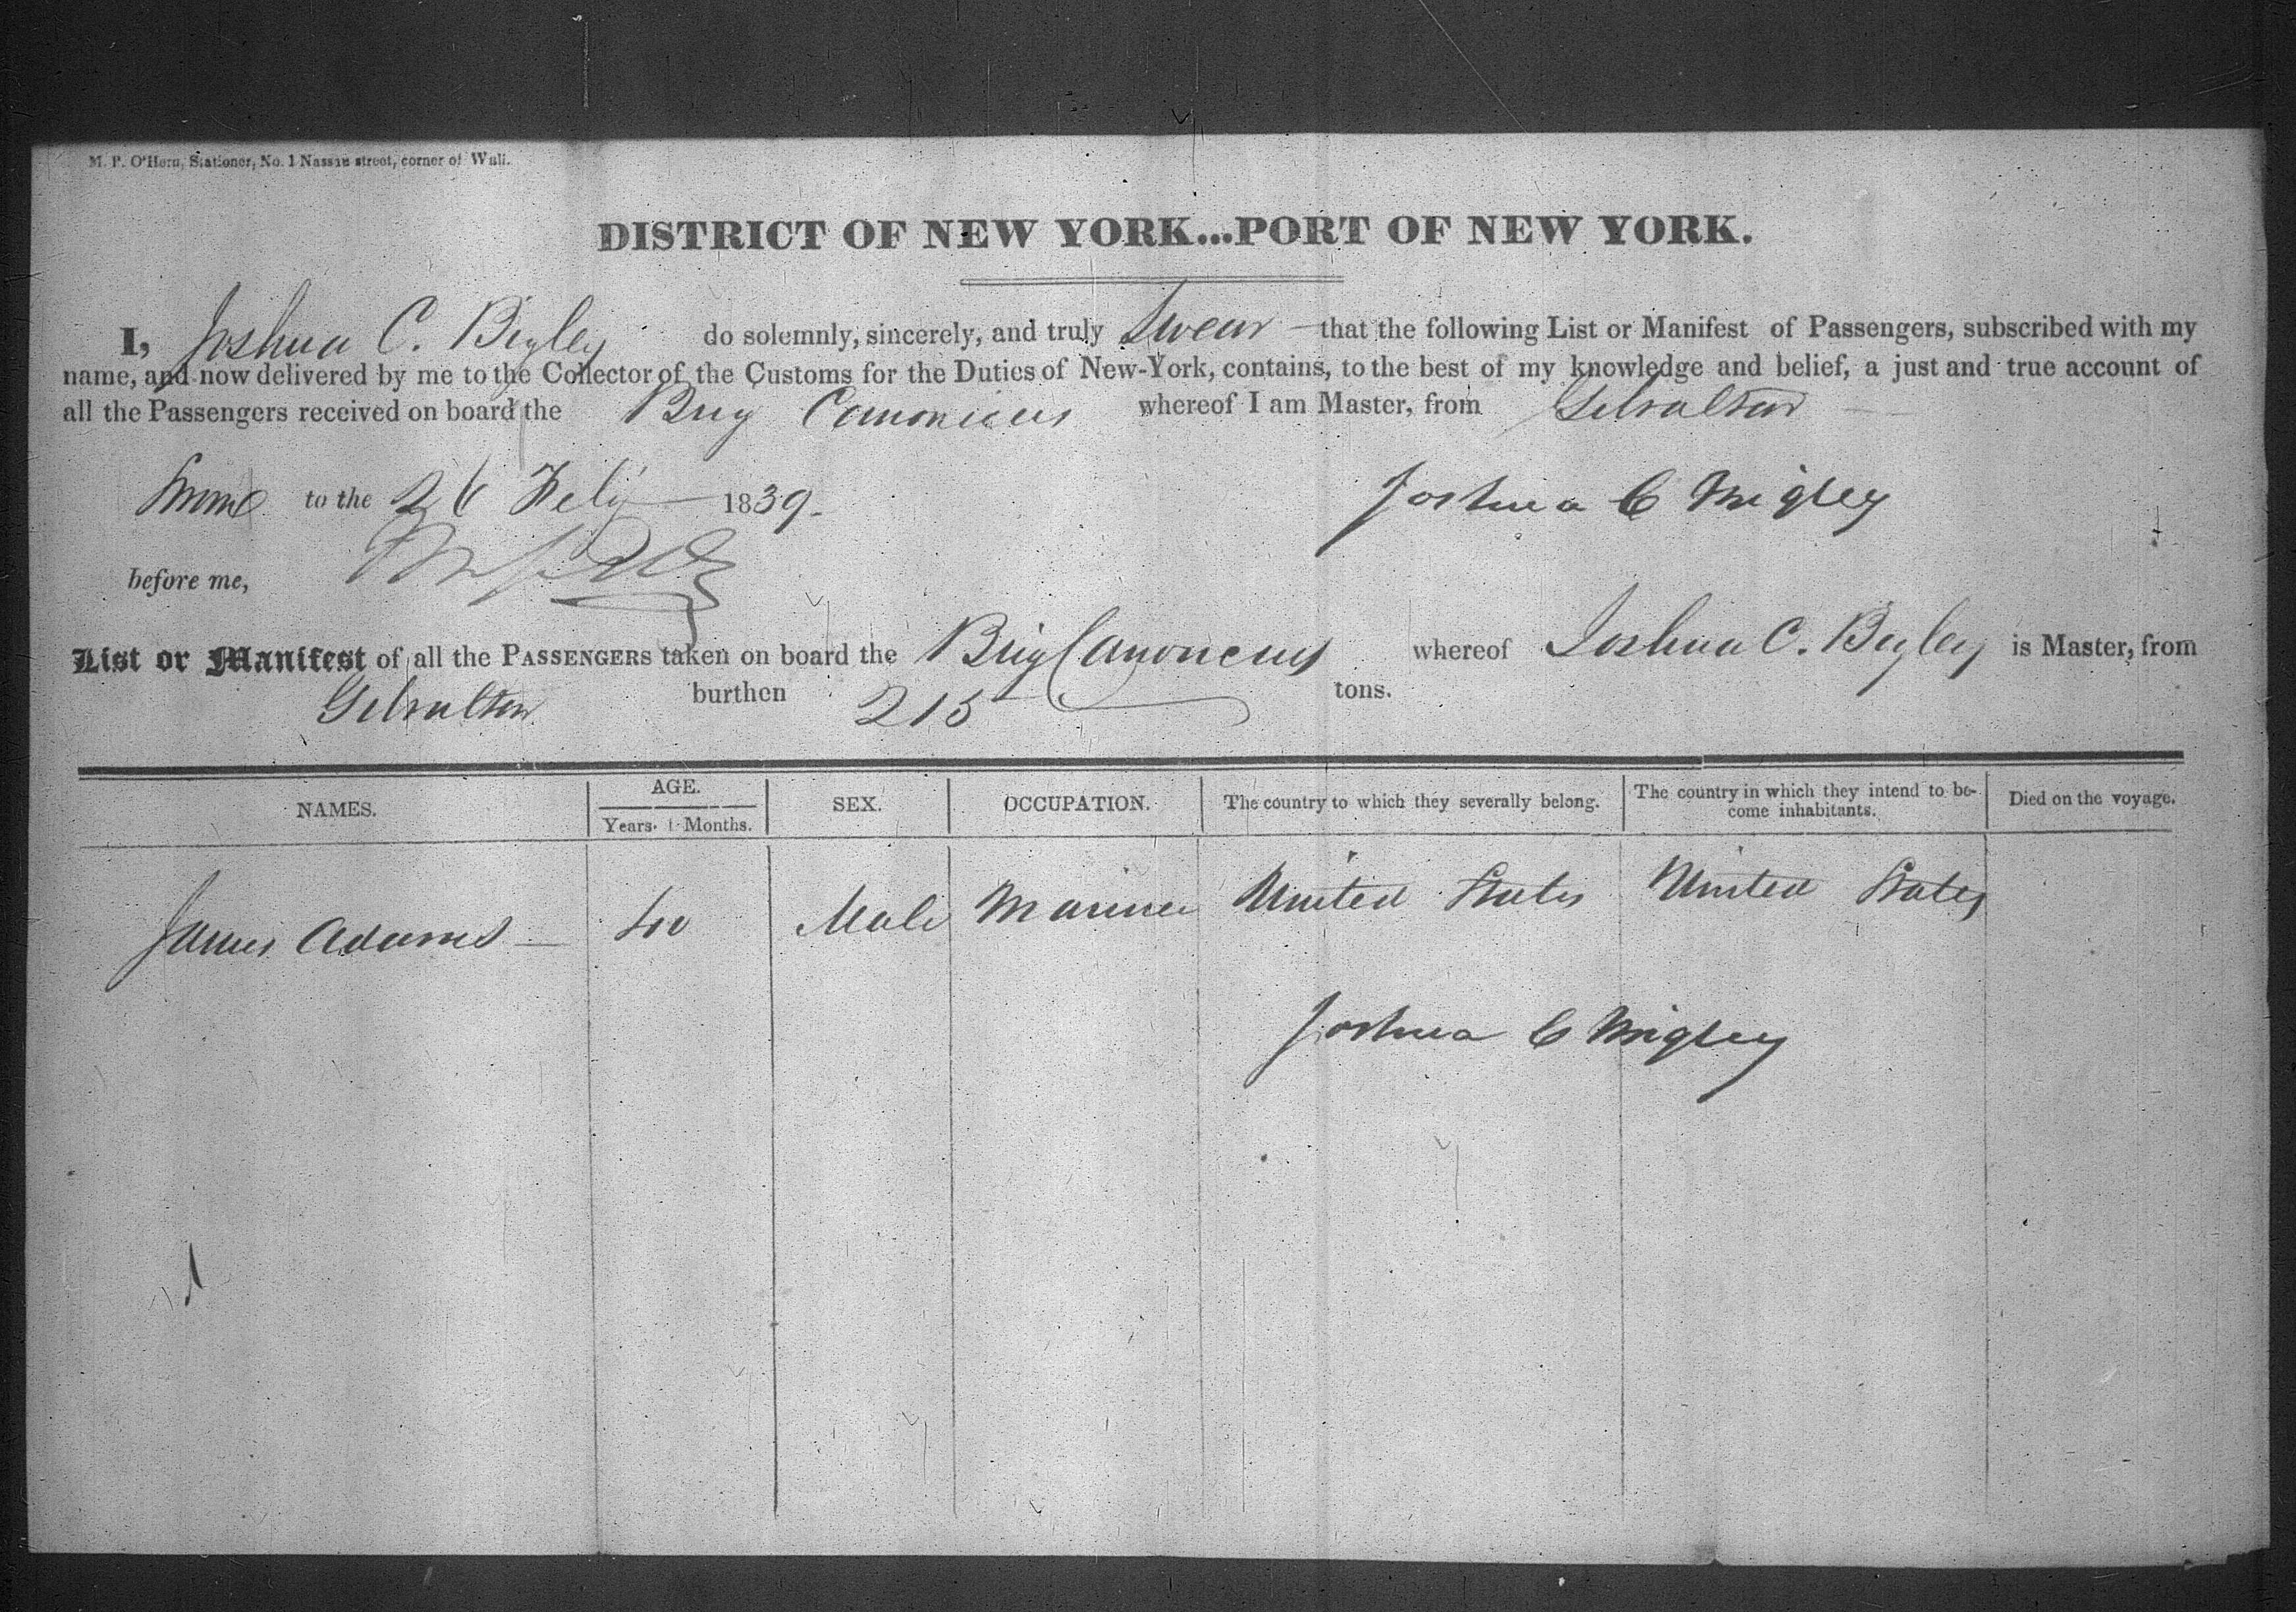 M. P. O'Hern, Stationer, No. 1 Nassau street, corner of Wall.
DISTRICT OF NEW YORK...PORT OF NEW YORK.
I, Joshua C. Bigley do solemnly, sincerely, and truly Swear that the following List or Manifest of Passengers, subscribed with my
name, and now delivered by me to the Collector of the Customs for the Duties of New-York, contains, to the best of my knowledge and belief, a just and true account of
all the Passengers received on board the Brig Canonicus whereof I am Master, from Gibraltar
to the 26 Feby 1839.
Joshua C
before me,
List or Manifest of all the PASSENGERS taken on board the Brig Canonicus whereof Joshua C. Bigley is Master, from
Gibraltar burthen 215 tons.
NAMES. AGE. SEX. OCCUPATION. The country to which they severally belong. The country in which they intend to be- Died on the voyage.
Years. Months. come inhabitants.
James Adams 40 Male Mariner United States United States
Joshua C